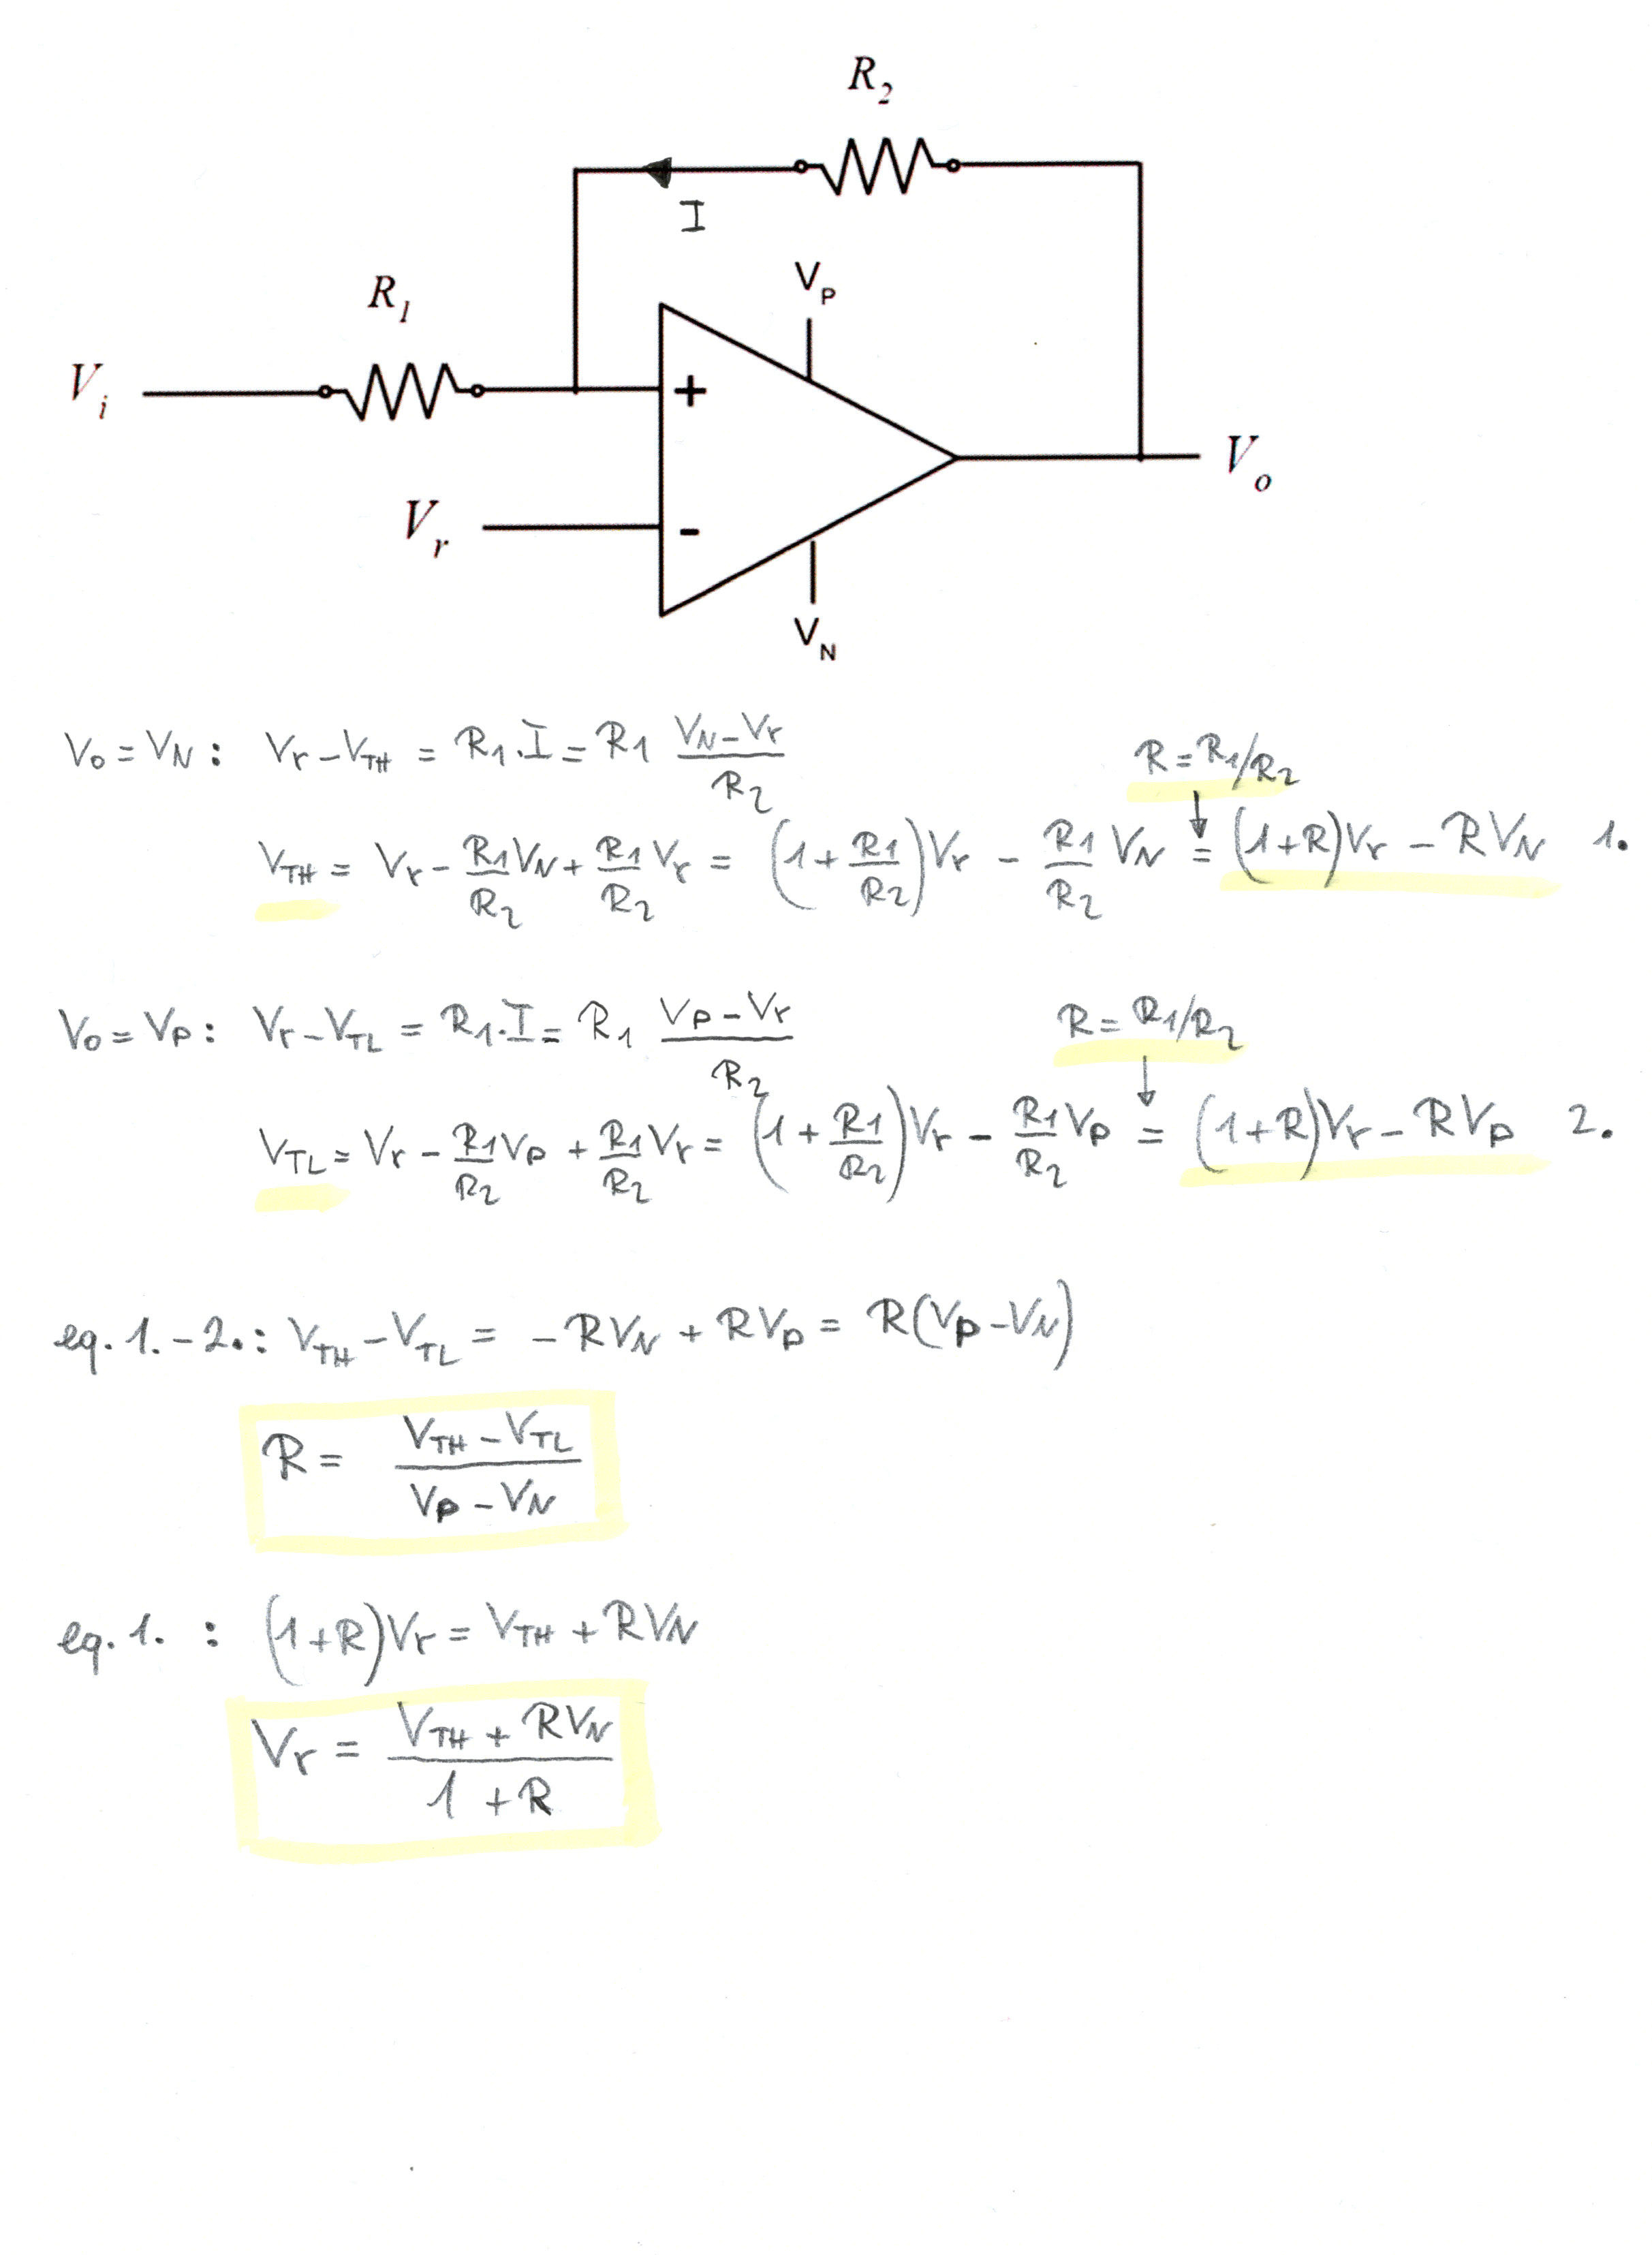 R₂
I
V_P
R₁
V_i
+
V_o
V_r
-
V_N
V_o = V_N : V_r - V_TH = R_1 . I = R_1 (V_N - V_r)/R_2
R = R_1/R_2
V_TH = V_r - R_1/R_2 V_N + R_1/R_2 V_r = (1 + R_1/R_2) V_r - R_1/R_2 V_N = (1+R)V_r - RV_N 1.
V_o = V_P : V_r - V_TL = R_1 . I = R_1 (V_P - V_r)/R_2
R = R_1/R_2
V_TL = V_r - R_1/R_2 V_P + R_1/R_2 V_r = (1 + R_1/R_2) V_r - R_1/R_2 V_P = (1+R)V_r - RV_P 2.
eq. 1. - 2. : V_TH - V_TL = - RV_N + RV_P = R(V_P - V_N)
R = (V_TH - V_TL)/(V_P - V_N)
eq. 1. : (1+R)V_r = V_TH + RV_N
V_r = (V_TH + RV_N)/(1 + R)